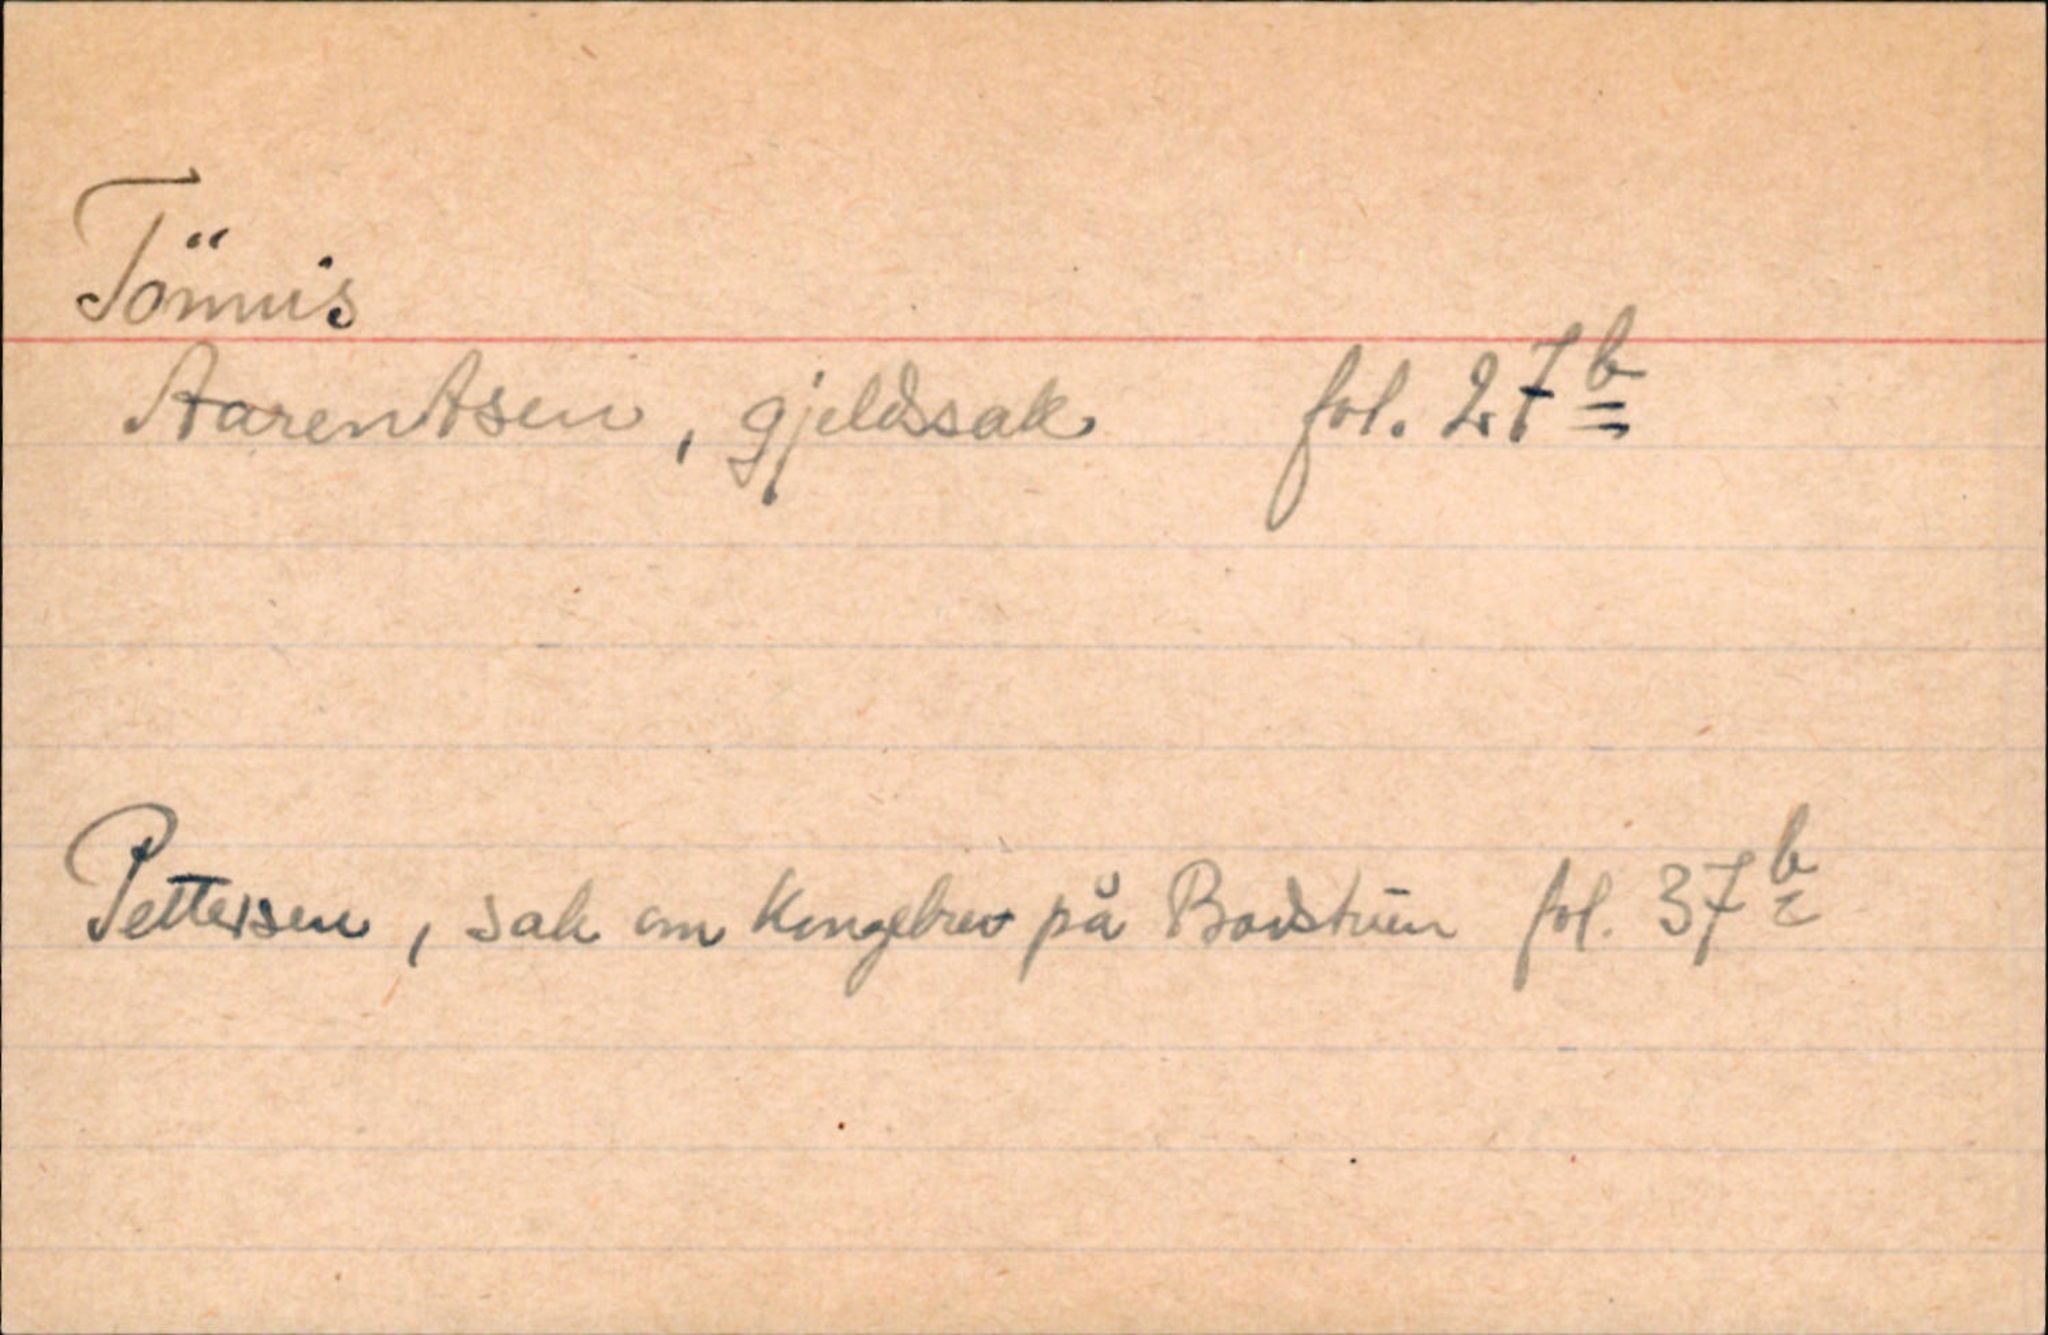 Tönnis
Aarentsen, gjeldssak fol. 27b
Pettersen, sak om Kongebrev på Badstuen fol. 37b